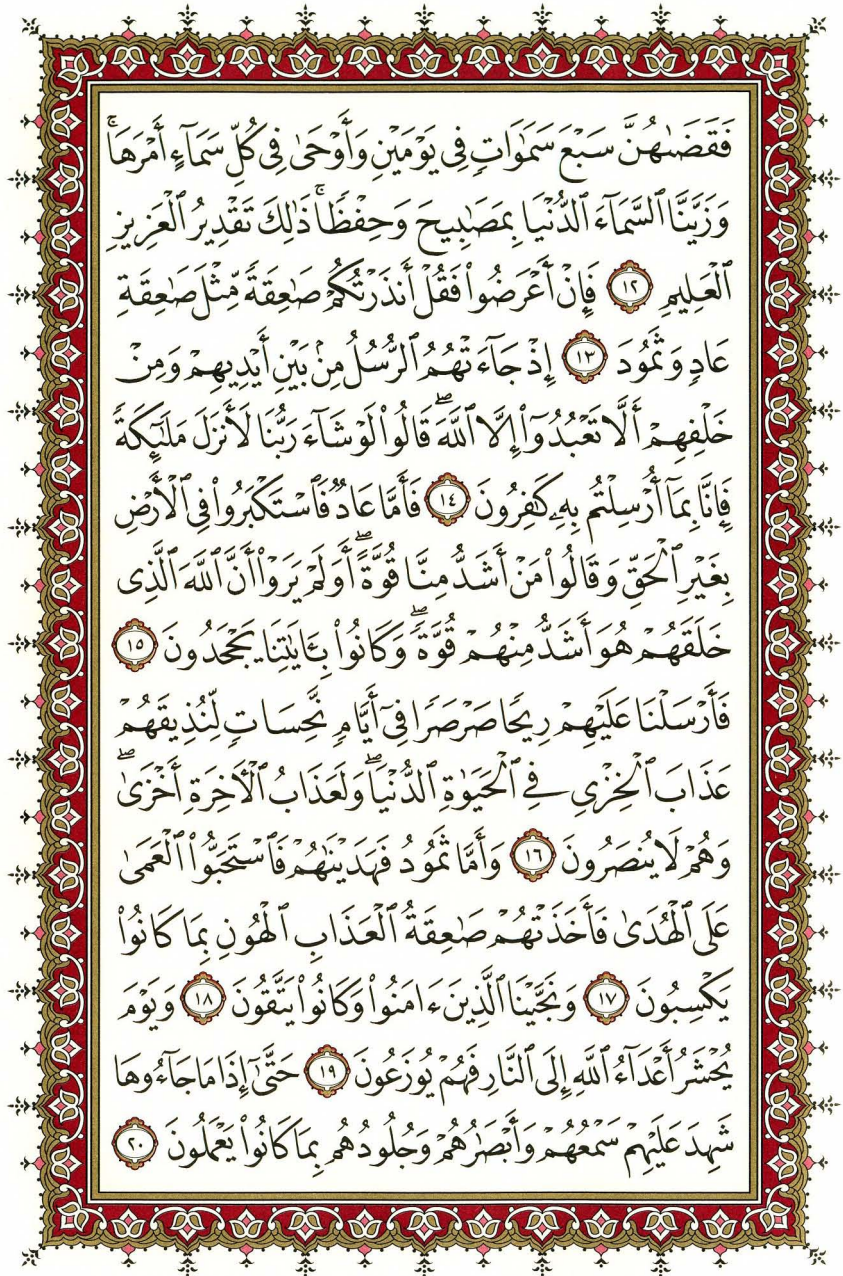 فَقَضَىٰهُنَّ سَبْعَ سَمَٰوَاتٍ فِى يَوْمَيْنِ وَأَوْحَىٰ فِى كُلِّ سَمَآءٍ أَمْرَهَا ۚ
وَزَيَّنَّا ٱلسَّمَآءَ ٱلدُّنْيَا بِمَصَٰبِيحَ وَحِفْظًا ۚ ذَٰلِكَ تَقْدِيرُ ٱلْعَزِيزِ
ٱلْعَلِيمِ ١٢ فَإِنْ أَعْرَضُوا۟ فَقُلْ أَنذَرْتُكُمْ صَٰعِقَةً مِّثْلَ صَٰعِقَةِ
عَادٍ وَثَمُودَ ١٣ إِذْ جَآءَتْهُمُ ٱلرُّسُلُ مِنۢ بَيْنِ أَيْدِيهِمْ وَمِنْ
خَلْفِهِمْ أَلَّا تَعْبُدُوٓا۟ إِلَّا ٱللَّهَ ۖ قَالُوا۟ لَوْ شَآءَ رَبُّنَا لَأَنزَلَ مَلَٰٓئِكَةً
فَإِنَّا بِمَآ أُرْسِلْتُم بِهِۦ كَٰفِرُونَ ١٤ فَأَمَّا عَادٌ فَٱسْتَكْبَرُوا۟ فِى ٱلْأَرْضِ
بِغَيْرِ ٱلْحَقِّ وَقَالُوا۟ مَنْ أَشَدُّ مِنَّا قُوَّةً ۖ أَوَلَمْ يَرَوْا۟ أَنَّ ٱللَّهَ ٱلَّذِى
خَلَقَهُمْ هُوَ أَشَدُّ مِنْهُمْ قُوَّةً ۖ وَكَانُوا۟ بِـَٔايَٰتِنَا يَجْحَدُونَ ١٥
فَأَرْسَلْنَا عَلَيْهِمْ رِيحًا صَرْصَرًا فِىٓ أَيَّامٍ نَّحِسَاتٍ لِّنُذِيقَهُمْ
عَذَابَ ٱلْخِزْىِ فِى ٱلْحَيَوٰةِ ٱلدُّنْيَا ۖ وَلَعَذَابُ ٱلْـَٔاخِرَةِ أَخْزَىٰ ۖ
وَهُمْ لَا يُنصَرُونَ ١٦ وَأَمَّا ثَمُودُ فَهَدَيْنَٰهُمْ فَٱسْتَحَبُّوا۟ ٱلْعَمَىٰ
عَلَى ٱلْهُدَىٰ فَأَخَذَتْهُمْ صَٰعِقَةُ ٱلْعَذَابِ ٱلْهُونِ بِمَا كَانُوا۟
يَكْسِبُونَ ١٧ وَنَجَّيْنَا ٱلَّذِينَ ءَامَنُوا۟ وَكَانُوا۟ يَتَّقُونَ ١٨ وَيَوْمَ
يُحْشَرُ أَعْدَآءُ ٱللَّهِ إِلَى ٱلنَّارِ فَهُمْ يُوزَعُونَ ١٩ حَتَّىٰٓ إِذَا مَا جَآءُوهَا
شَهِدَ عَلَيْهِمْ سَمْعُهُمْ وَأَبْصَٰرُهُمْ وَجُلُودُهُم بِمَا كَانُوا۟ يَعْمَلُونَ ٢٠